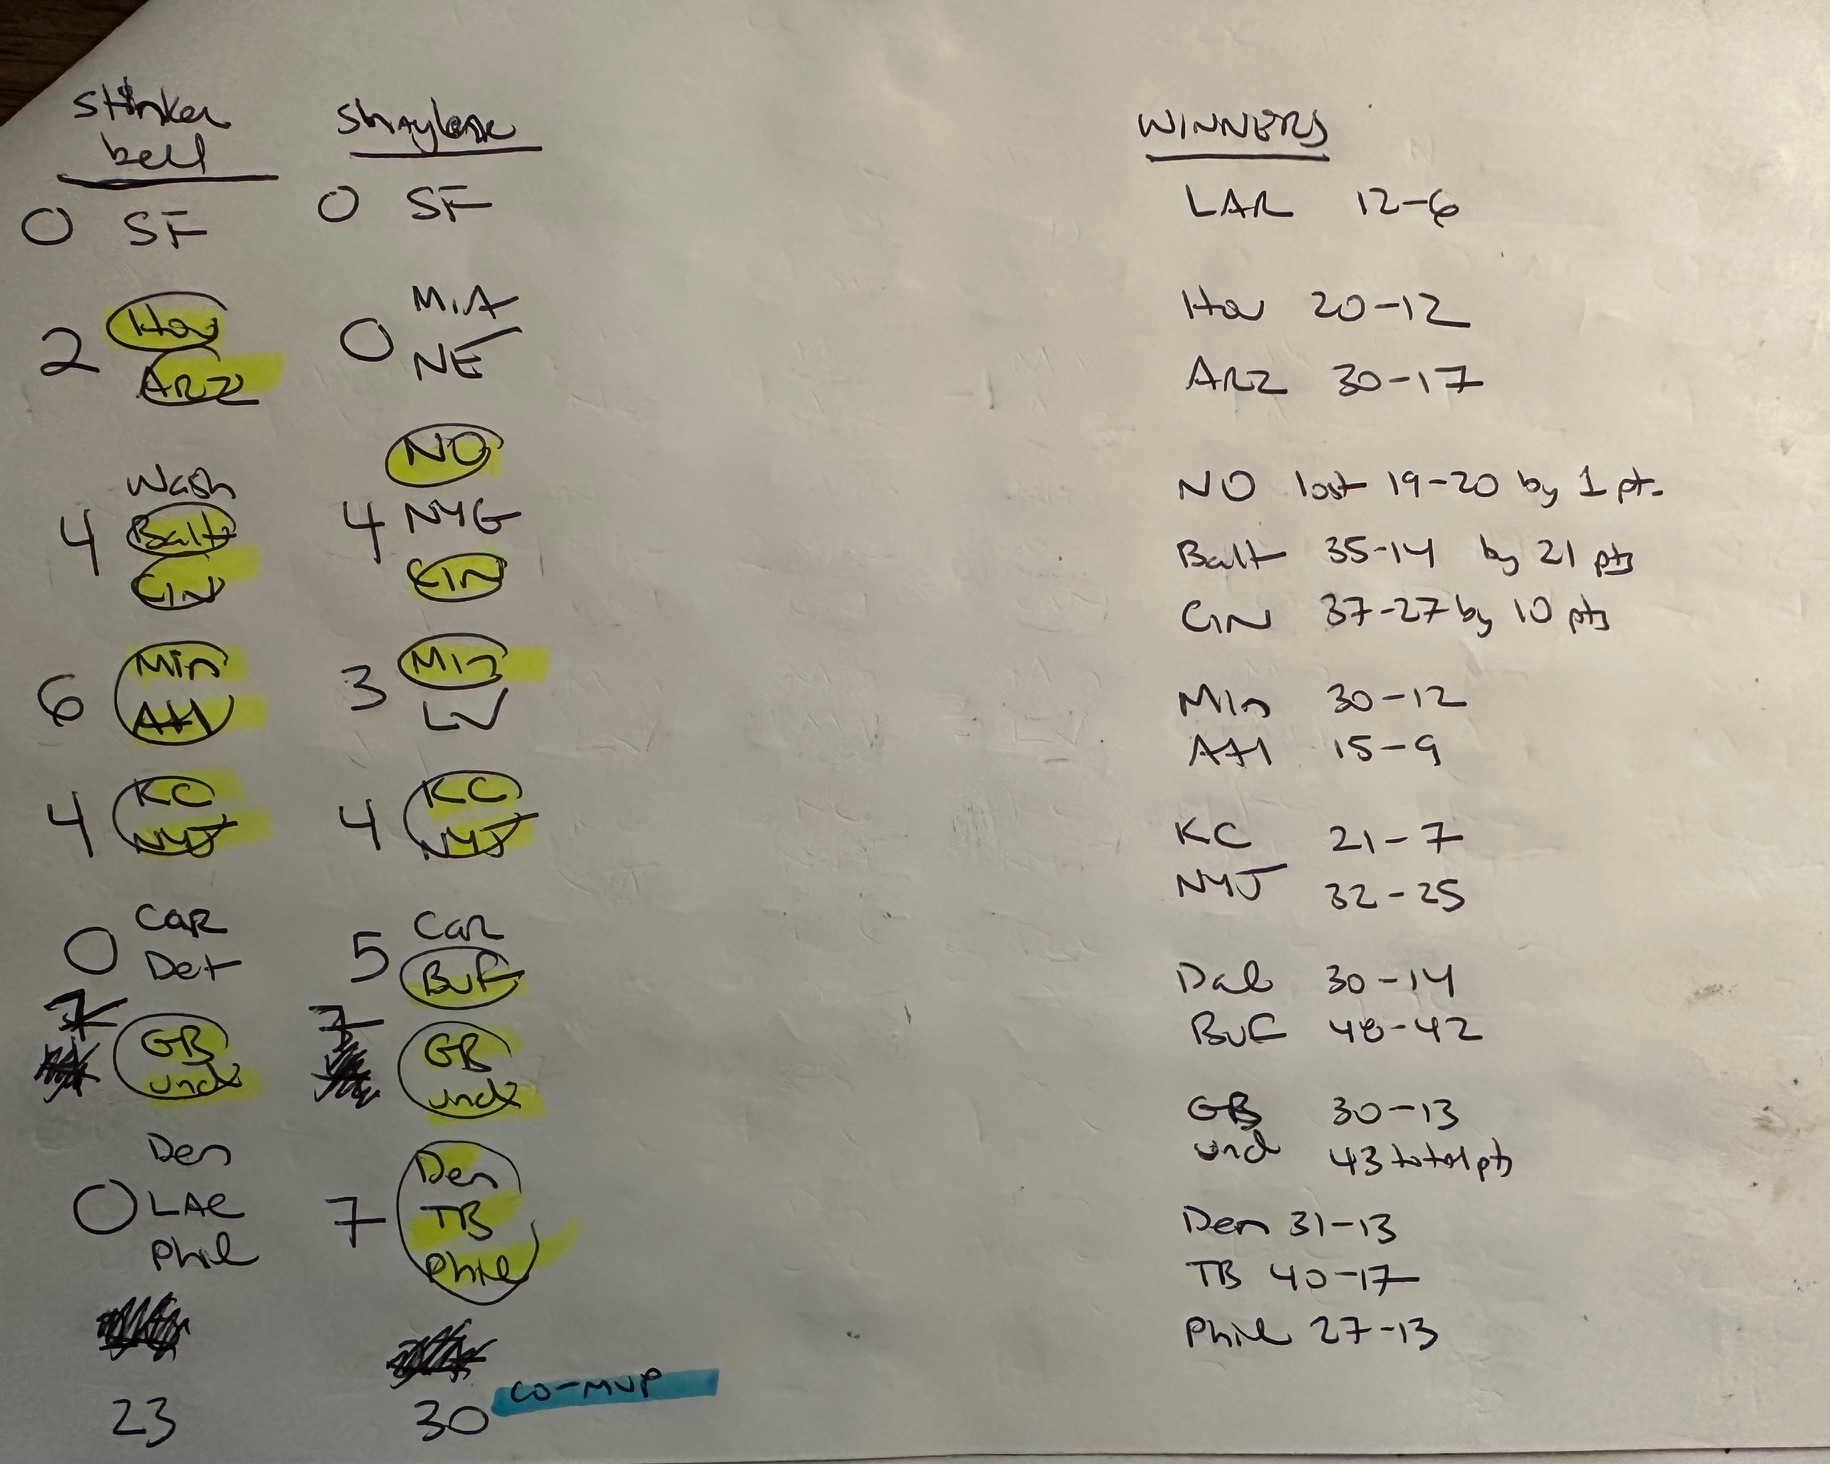 Stinker
bell
0 SF
2 Hou
ARZ
Wash
4 Balt
CIN
6 Min
Atl
4 KC
NYJ
0 Car
Det
7 GB
und
Den
0 LAC
Phil
23
Shaylene
0 SF
0 MIA
NE
NO
4 NYG
CIN
3 Min
LV
4 KC
NYJ
5 Car
BUF
7 GB
und
Den
7 TB
Phil
30 CO-MVP
WINNERS
LAR 12-6
Hou 20-12
ARZ 30-17
NO lost 19-20 by 1 pt.
Balt 35-14 by 21 pts
CIN 37-27 by 10 pts
Min 30-12
Atl 15-9
KC 21-7
NYJ 32-25
Dal 30-14
BUF 48-42
GB 30-13
und 43 total pts
Den 31-13
TB 40-17
Phil 27-13